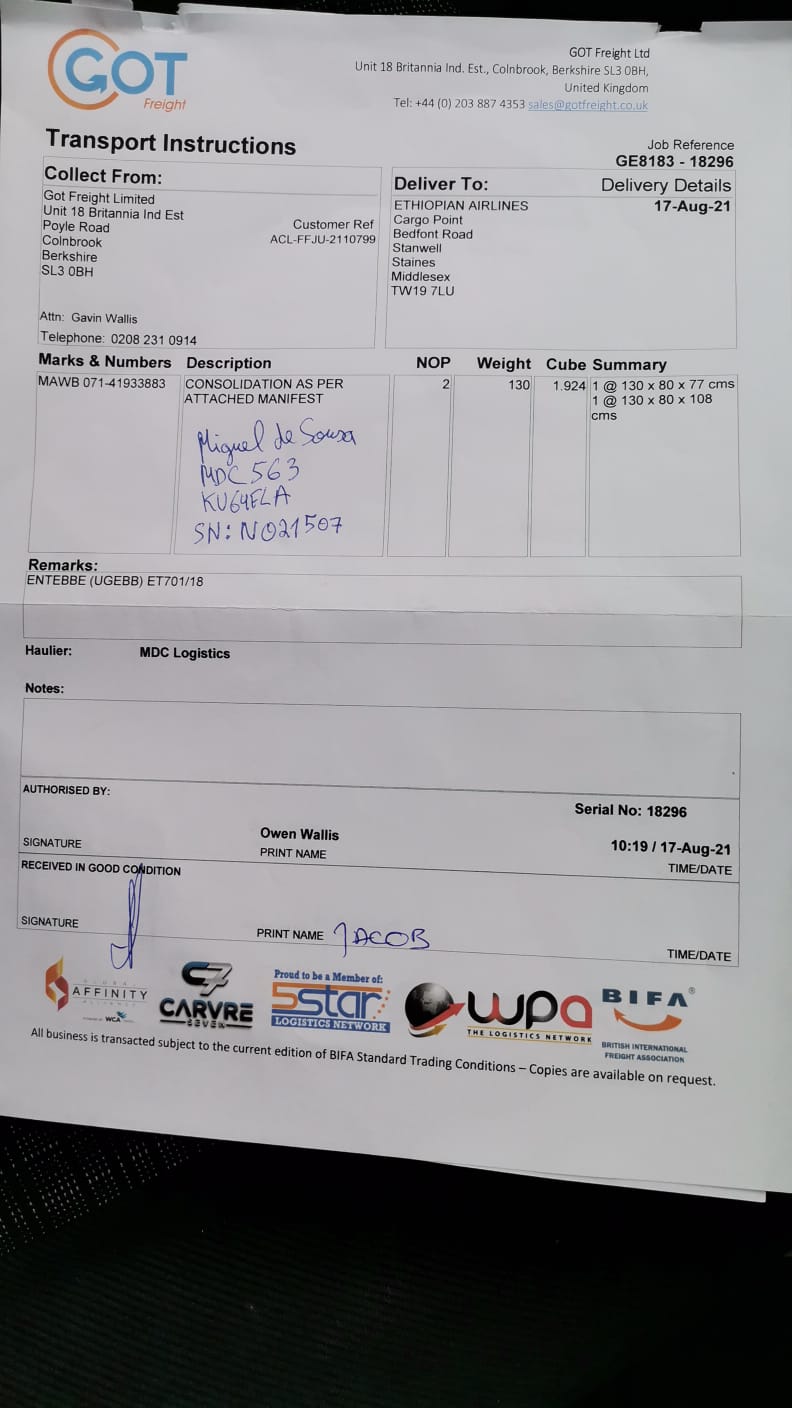 GOT
Freight
GOT Freight Ltd
Unit 18 Britannia Ind. Est., Colnbrook, Berkshire SL3 0BH,
United Kingdom
Tel: +44 (0) 203 887 4353 sales@gotfreight.co.uk
Transport Instructions
Job Reference
GE8183 - 18296
Collect From:
Got Freight Limited
Unit 18 Britannia Ind Est
Poyle Road
Colnbrook
Berkshire
SL3 0BH
Customer Ref
ACL-FFJU-2110799
Attn: Gavin Wallis
Telephone: 0208 231 0914
Deliver To:
Delivery Details
17-Aug-21
ETHIOPIAN AIRLINES
Cargo Point
Bedfont Road
Stanwell
Staines
Middlesex
TW19 7LU
Marks & Numbers Description NOP Weight Cube Summary
MAWB 071-41933883 CONSOLIDATION AS PER 2 130 1.924 1 @ 130 x 80 x 77 cms
ATTACHED MANIFEST 1 @ 130 x 80 x 108
cms
Miguel de Sousa
MDC 563
KU64ELA
SN: N021507
Remarks:
ENTEBBE (UGEBB) ET701/18
Haulier: MDC Logistics
Notes:
AUTHORISED BY:
Serial No: 18296
Owen Wallis 10:19 / 17-Aug-21
SIGNATURE PRINT NAME TIME/DATE
RECEIVED IN GOOD CONDITION
SIGNATURE PRINT NAME JACOB TIME/DATE
AFFINITY
WCA
CARVRE
SEVEN
Proud to be a Member of:
5star
LOGISTICS NETWORK
wpa
THE LOGISTICS NETWORK
BIFA®
BRITISH INTERNATIONAL
FREIGHT ASSOCIATION
All business is transacted subject to the current edition of BIFA Standard Trading Conditions – Copies are available on request.